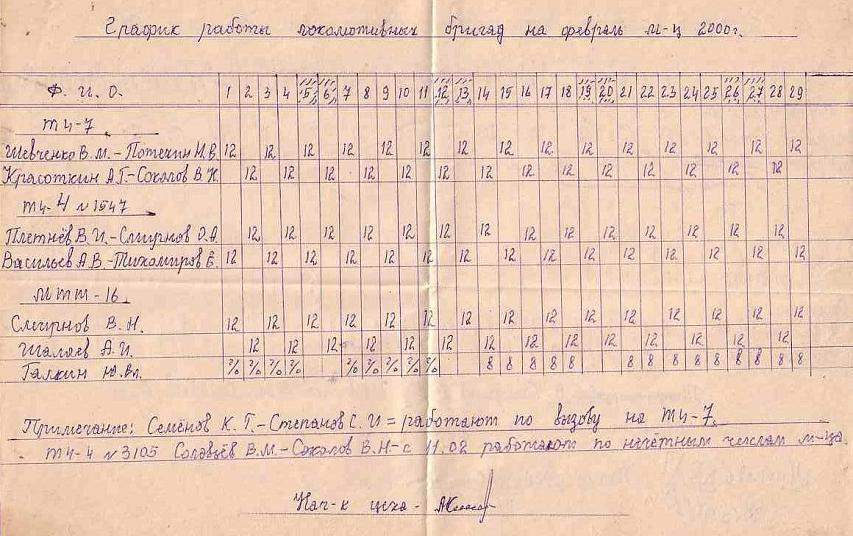 График работы локомотивных бригад на февраль м-ц 2000г.
Ф. И. О. 1 2 3 4 5 6 7 8 9 10 11 12 13 14 15 16 17 18 19 20 21 22 23 24 25 26 27 28 29
ТЧ-7
Шевченко В.М.-Потехин Н.В. 12 12 12 12 12 12 12 12 12 12 12 12 12 12 12
Красоткин А.Г.-Соколов В.Н. 12 12 12 12 12 12 12 12 12 12 12 12 12 12
ТЧ-4 №1547
Плетнёв В.И.-Смирнов О.А. 12 12 12 12 12 12 12 12 12 12 12 12 12 12
Васильев А.В.-Тихомиров Е. 12 12 12 12 12 12 12 12 12 12 12 12 12 12 12
МПТ-16
Смирнов В.Н. 12 12 12 12 12 12 12 12 12 12 12 12 12 12 12
Шалаев А.И. 12 12 12 12 12 12 12 12 12 12 12 12 12 12
Галкин Ю.Вл. % % % % % % % % % 8 8 8 8 8 8 8 8 8 8 8 8 8 8
Примечание: Семёнов К.Г.-Степанов С.И = работают по вызову на ТЧ-7.
ТЧ-4 №3105 Соловьёв В.М.-Соколов В.Н-с 11.02 работают по нечётным числам м-ца
Нач-к цеха -